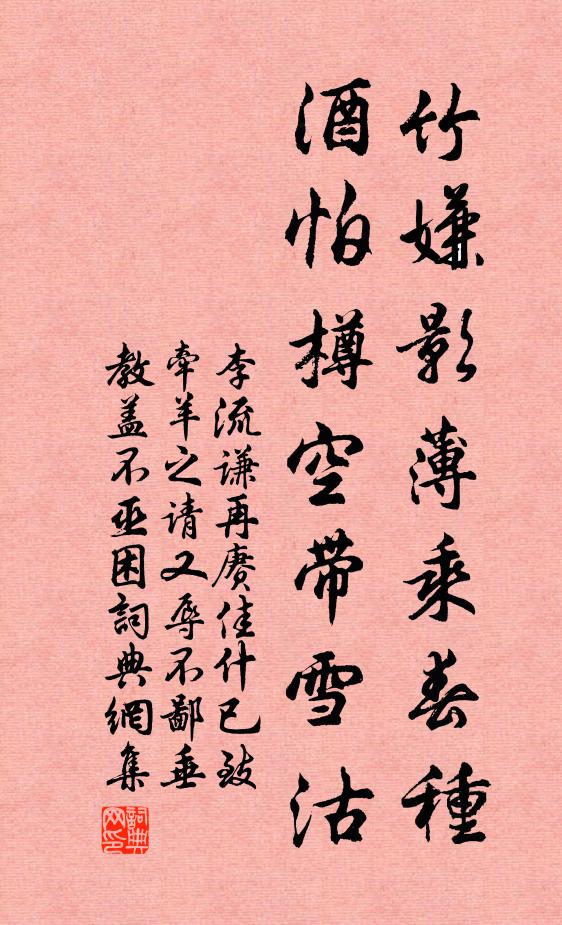 竹嫌影薄乘春種
酒怕樽空带雪沽
李流谦再赓佳什已致
牵羊之请又辱不鄙垂
教盖不亟困詞典網集
詞典
网印